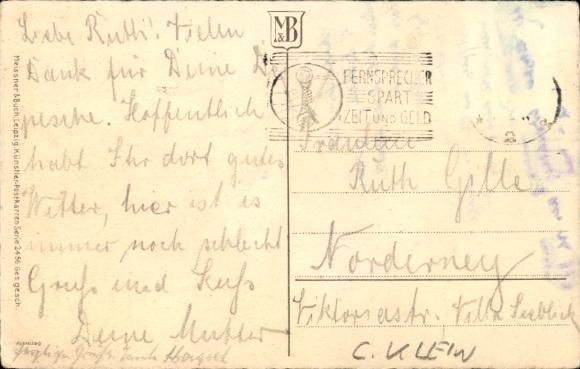 Liebe Ruth! Vielen
Dank für Deine De
pesche. Hoffentlich
habt Ihr dort gutes
Wetter, hier ist es
immer noch schlecht
Gruß und Kuß
Deine Mutter
M&B
FERNSPRECHER
SPART
ZEIT UND GELD
Fräulein
Ruth Gille
Norderney
Viktoriastr. Villa Seeblick
C. KLEIN
Meissner & Buch, Leipzig, Künstler-Postkarten Serie 2456 Ges. gesch.